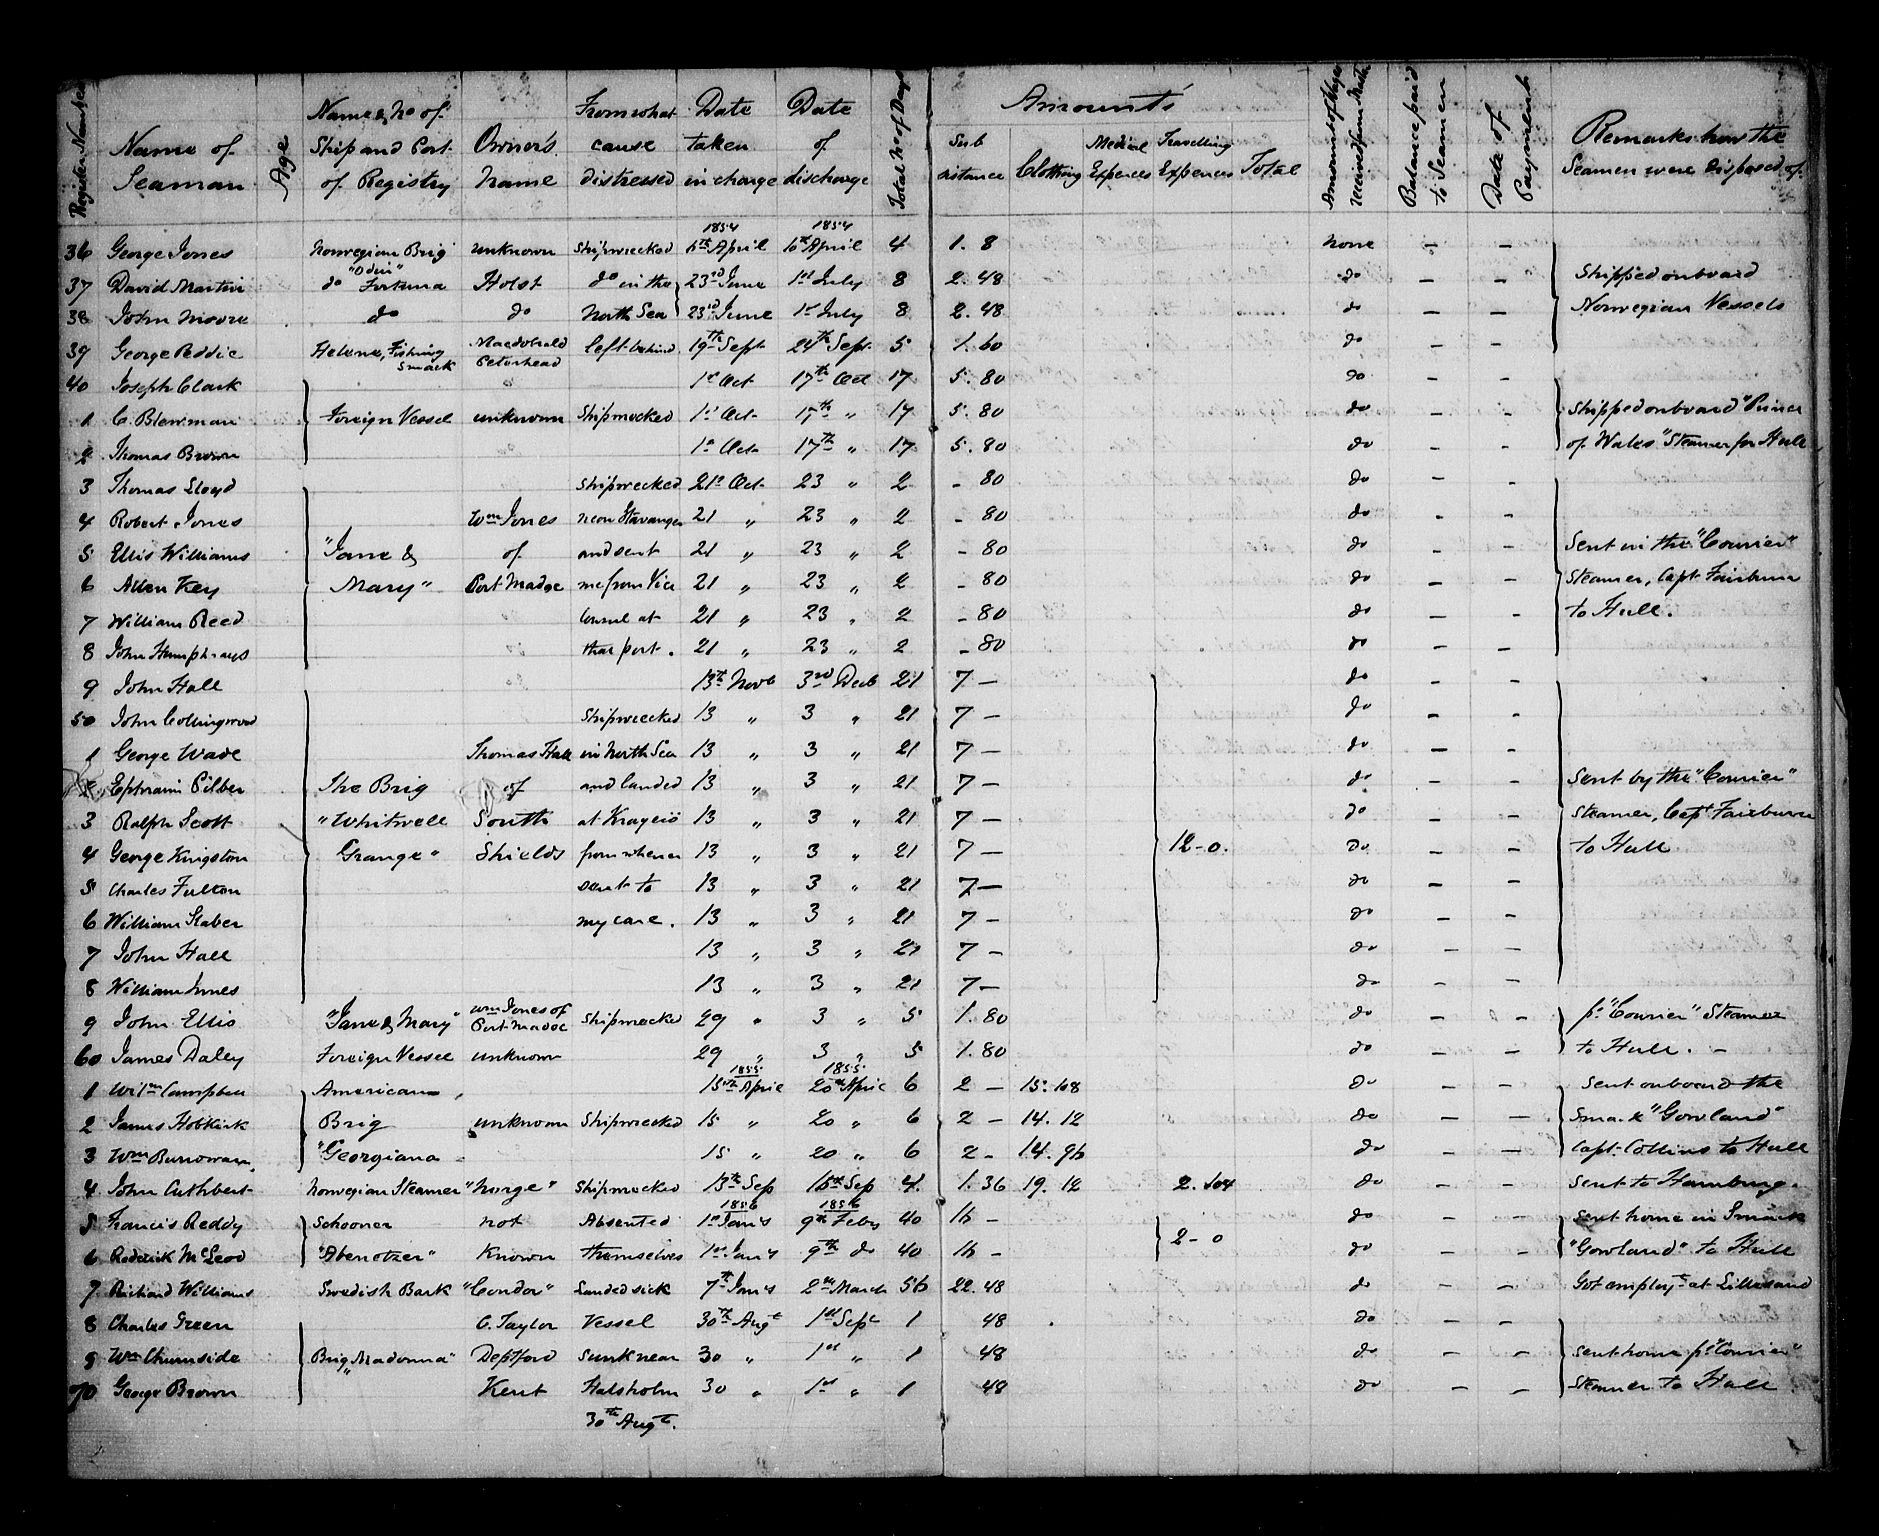 Register Number | Name of Seaman | Age | Name & No of Ship and Port of Registry | Owner's Name | From what cause distressed | Date taken in charge | Date of discharge | Total No of Days | Amounts: Subsistance | Clothing | Medical Expences | Travelling Expences | Total | Amount of Wages received from Master | Balance paid to Seamen | Date of Payment | Remarks how the Seamen were Disposed of
1854 1854
36 George Jones Norwegian Brig "Odin" unknown Shipwrecked 6th April 10th April 4 1. 8 none – –
37 David Martin do Fortuna Holst do in the 23rd June 1st July 8 2. 48 do – – Shipped onboard
38 John Moore do do North Sea 23rd June 1st July 8 2. 48 do – – Norwegian Vessels
39 George Peddie Helene, Fishing Smack Macdonald Peterhead left behind 19th Sept 24th Sept 5 1. 60 do – –
40 Joseph Clark 1st Oct 17th Oct 17 5. 80 do – –
1 C. Blewman Foreign Vessel unknown Shipwrecked 1st Oct 17th " 17 5. 80 do – – Shipped onboard "Prince
2 Thomas Brown 1st Oct 17th " 17 5. 80 do – – of Wales" Steamer for Hull
3 Thomas Lloyd shipwrecked 21st Oct 23 " 2 – 80 do – –
4 Robert Jones Wm Jones near Stavanger 21 " 23 " 2 – 80 do – –
5 Ellis Williams "Jane & of and sent 21 " 23 " 2 – 80 do – – Sent in the "Courier"
6 Allen Key Mary" Port Madoc me from Vice 21 " 23 " 2 – 80 do – – Steamer, Capt Fairburn
7 William Reed Consul at 21 " 23 " 2 – 80 do – – to Hull.
8 John Humphrays that port. 21 " 23 " 2 – 80 do – –
9 John Hall 13th Novb 3rd Decb 21 7 – do – –
50 John Collingwood Shipwrecked 13 " 3 " 21 7 – do – –
1 George Wade Thomas Hall in North Sea 13 " 3 " 21 7 – do – –
Ephraim Pilber The Brig of and landed 13 " 3 " 21 7 – do – – Sent by the "Courier"
3 Ralph Scott "Whitwell South at Krageiö 13 " 3 " 21 7 – do – – Steamer, Capt Fairburn
4 George Kingston Grange" Shields from whence 13 " 3 " 21 7 – 12–0. do – – to Hull
5 Charles Fulton sent to 13 " 3 " 21 7 – do – –
6 William Slaber my care. 13 " 3 " 21 7 – do – –
7 John Hall 13 " 3 " 21 7 – do – –
8 William Innes 13 " 3 " 21 7 – do – –
9 John Ellis "Jane & Mary" Wm Jones of Port Madoc Shipwrecked 29 " 3 " 5 1. 80 do – – pr "Courier" Steamer
60 James Daley Foreign Vessel unknown 29 " 3 " 5 1. 80 do – – to Hull. –
1855 1855
1 Wilm Campbell American 15th April 20th April 6 2 – 15. 108 do – – Sent onboard the
2 James Hobkirk Brig unknown Shipwrecked 15 " 20 " 6 2 – 14. 12 do – – Smack "Gowland"
3 Wm Burrowman "Georgiana 15 " 20 " 6 2 – 14. 96 do – – Capt. Collins to Hull
4 John Cuthbert Norwegian Steamer "Norge" Shipwrecked 13th Sep 16th Sep 4 1. 36 19. 12 2. 104 do – – Sent to Hamburg.
1856 1856
5 Francis Reddy Schooner not Absented 1st Jany 9th Feby 40 16 – do – – sent home in Smack
6 Roderick McLeod "Abenetzer" Known themselves 1st Jany 9th do 40 16 – 2–0 do – – "Gowland" to Hull
7 Richard Williams Swedish Bark "Condor" Landed sick 7th Jany 2nd March 56 22. 48 do – – Got employt at Lillesand
8 Charles Green C. Taylor Vessel 30th Augt 1st Sept 1 48 do – –
9 Wm Churnside Brig "Madonna" Deptford sunk near 30 " 1st " 1 48 do – – sent home pr "Courier"
70 George Brown Kent Halsholm 30 " 1st " 1 48 do – – Steamer to Hull
30th Augt.